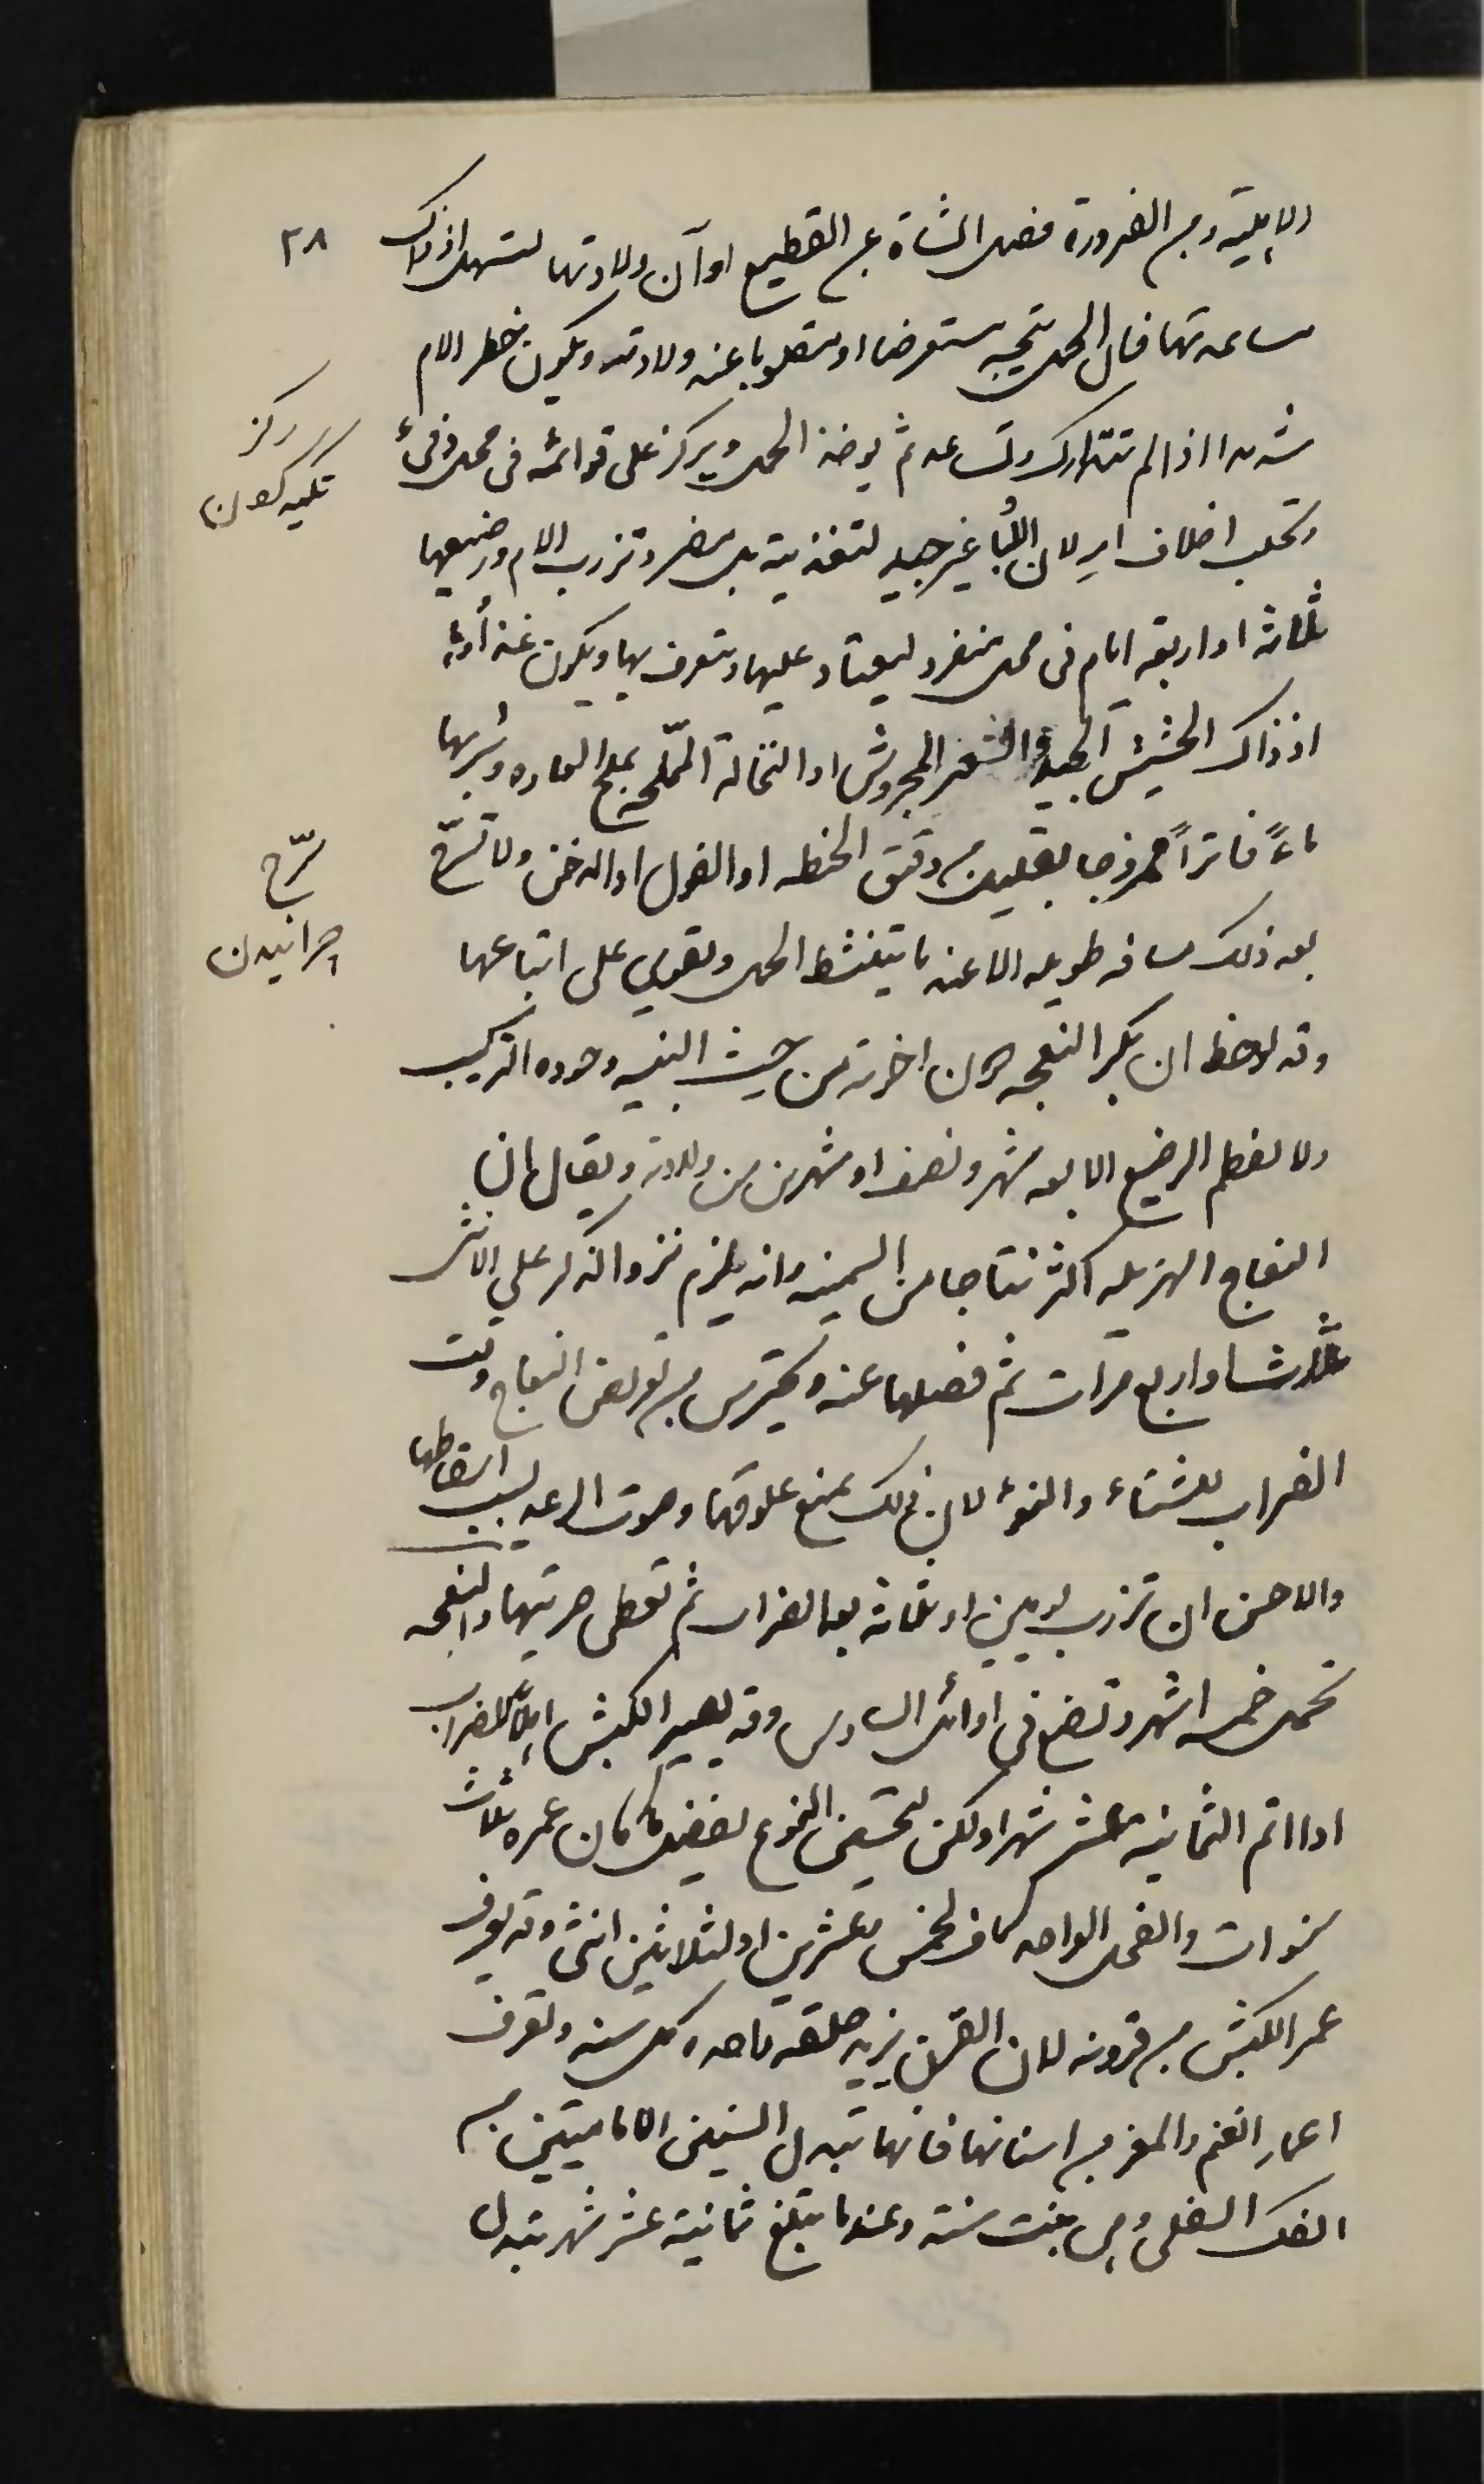 ٢٨
الاهلية ومن الضرورة فصل الشاة عن القطيع اوآن ولادتها لتسهل اذ ذاك
مساعدتها فان الحمل يتجه مستعرضا او مقلوبا عند ولادته ويكون خطر الام
شديدا اذا لم تتدارك وتساعد ثم يوخذ الحمل ويركز على قوائمه فى محل دفئ
وتحلب اخلاف امه لان اللبأ غير جيد لتغذيته بل مضر وتزرب الام ورضيعها
ثلاثة او اربعة ايام فى محل منفرد ليعتاد عليها ويتعرف بها ويكون غذاؤها
اذ ذاك الحشيش الجيد والشعير المجروش او النخالة المملحه بملح العاده وشربها
ماءً فاتراً ممزوجا بقليل من دقيق الحنطه او الفول او الدخن ولا تسرّح
بعد ذلك مسافه طويله الا عند ما يتنشط الحمل ويقوى على اتباعها
وقد لاحظ ان بكر النعجه اخوته من حيث البنيه وجودة التركيب
ولا يفطم الرضيع الا بعد شهر ونصف او شهرين من ولادته ويقال ان
النعاج الهزيله اكثر نتاجا من السمينه وانه يلزم نزو الذكر على الانثى
ثلاثا واربع مرات ثم فصلها عنه ويحترس من تعريض النعاج وقت
الضراب للشتاء والنوء لان ذلك يمنع علوقها وصوت الرعد يسبب اسقاطها
والاحسن ان تزرب يومين او ثلاثة بعد الضراب ثم تعطى حريتها والنعجه
تحمل خمسة اشهر وتضع فى اوائل السادس وقد يصير الكبش اهلاً للضراب
اذا اتم الثمانية عشر شهرا ولكن لتحسين النوع يفضل ما كان عمره ثلاث
سنوات والفحل الواحد كاف لخمس وعشرين او لثلاثين انثى وقد يعرف
عمر الكبش من قرونه لان القرن يزيد حلقه واحده كل سنه وتعرف
اعمار الغنم والمعز من اسنانها فانها تبدل السنين الاماميتين من
الفك السفلى وهى بنت سنة وعندما تبلغ ثمانية عشر شهر تبدل
ركز
تكيه كردن
سرّح
چرانيدن